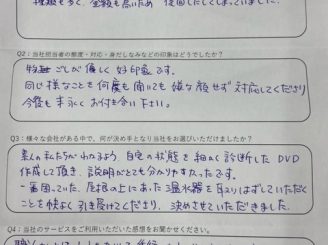 種類も多く、金額も高いため 後回しにしてしまっていました。
Q2：当社担当者の態度・対応・身だしなみなどの印象はどうでしたか？
物腰ごしが優しく 好印象です。
同じ様なことを何度も聞いても 嫌な顔せず 対応してくださり
今後も末永くお付合い下さい。
Q3：様々な会社がある中で、何が決め手となり当社をお選びいただけましたか？
素人の私たちがわかるよう 自宅の状態を細かく診断したDVD
作成して頂き、説明がとても分かりやすかったです。
一番困っていた、屋根の上にあった温水器を取りはずしていただく
ことを快よく引き受けてくださり、決めさせていただきました。
Q4：当社のサービスをご利用いただいた感想をお聞かせください。